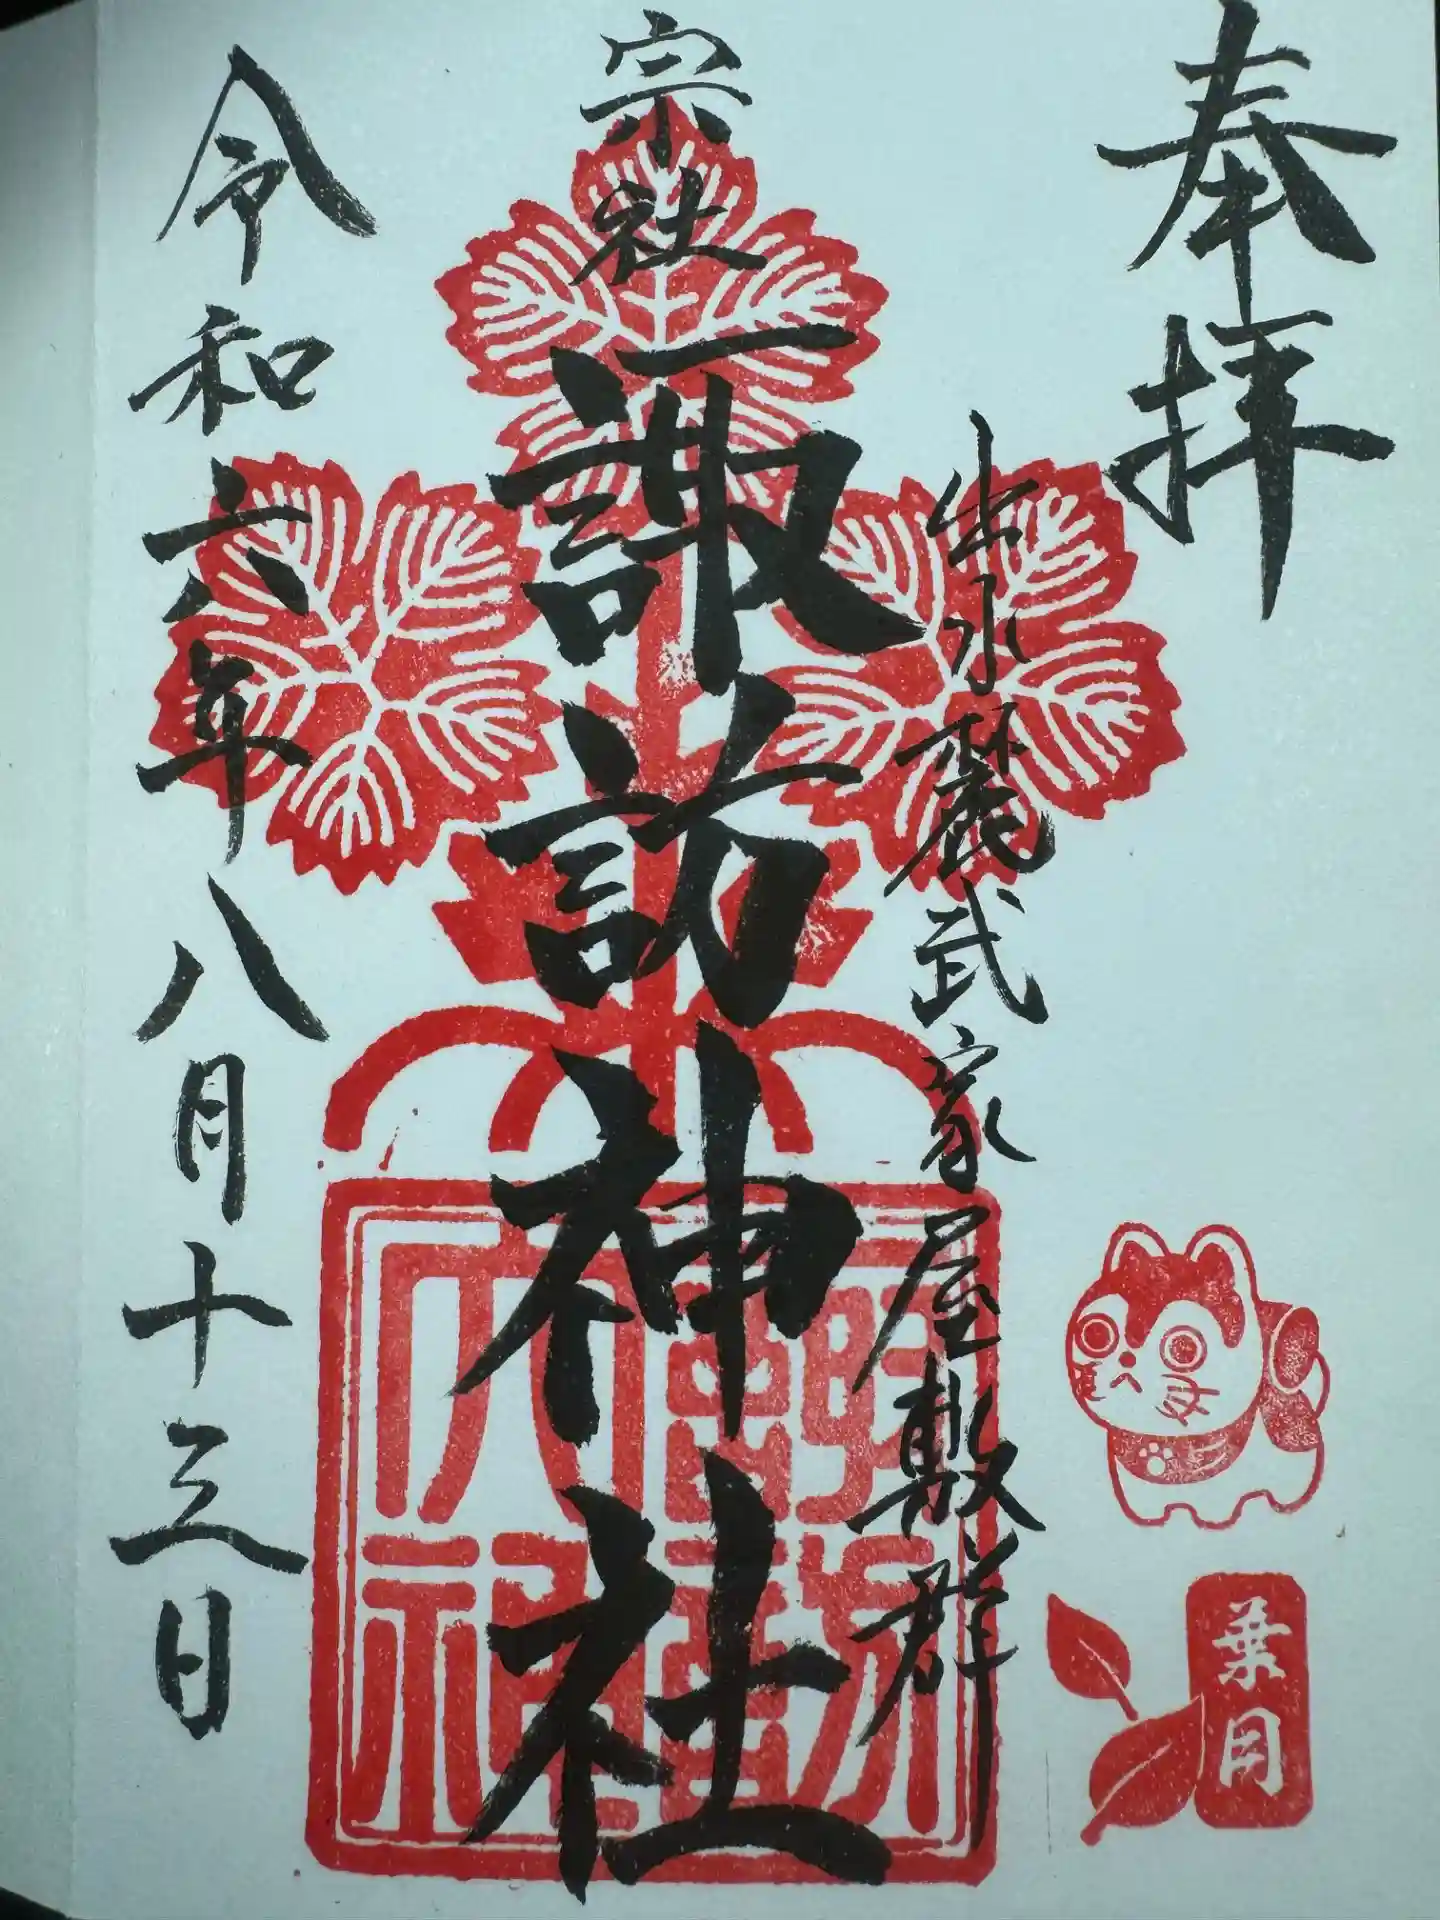 奉拝
出水麓武家屋敷群
宗社
諏訪神社
令和六年八月十三日
葉月